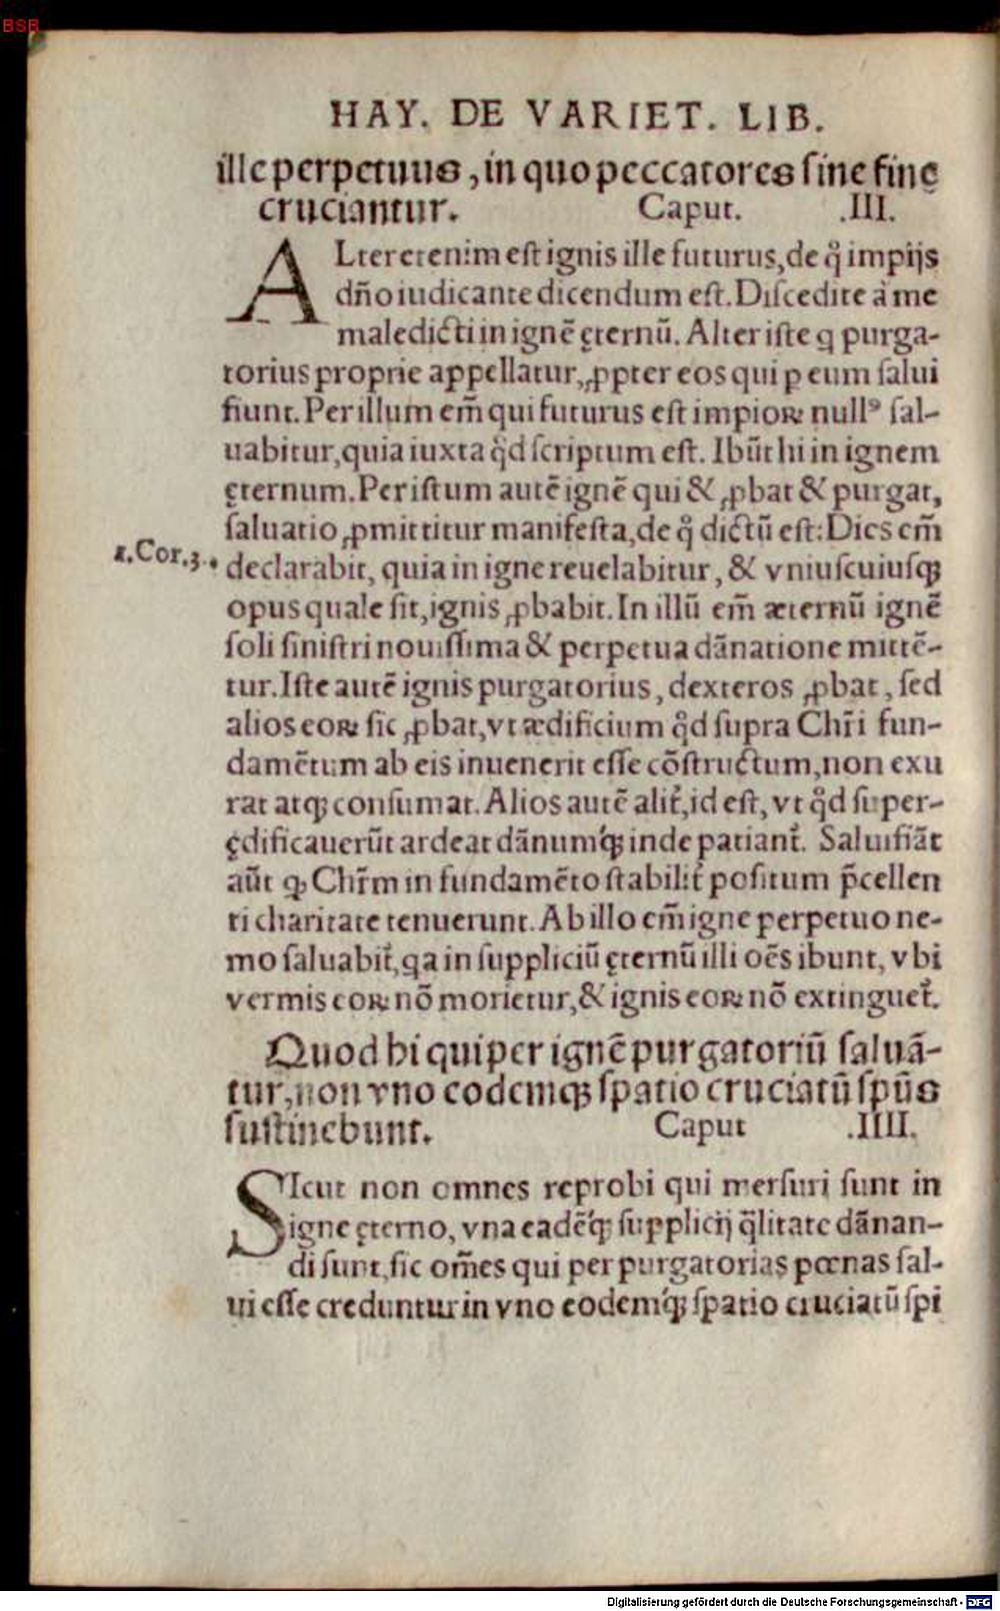 BSB
HAY. DE VARIET. LIB.
ille perpetuus, in quo peccatores sine fine
cruciantur. Caput. .III.
ALter etenim est ignis ille futurus, de q̊ impijs
dn̄o iudicante dicendum est. Discedite à me
maledicti in ignē ęternū. Alter iste q purga-
torius proprie appellatur, ꝓpter eos qui ꝑ eum salui
fiunt. Per illum em̄ qui futurus est impioꝝ nullꝰ sal-
uabitur, quia iuxta qd̓ scriptum est. Ibūt hi in ignem
ęternum. Per istum autē ignē qui & ꝓbat & purgat,
saluatio ꝓmittitur manifesta, de q̊ dictū est: Dies em̄
1. Cor. 3. declarabit, quia in igne reuelabitur, & vniuscuiusqꝫ
opus quale sit, ignis ꝓbabit. In illū em̄ æternū ignē
soli sinistri nouissima & perpetua dānatione mittē-
tur. Iste autē ignis purgatorius, dexteros ꝓbat, sed
alios eoꝝ sic ꝓbat, vt ædificium qd̓ supra Chr̄i fun-
damētum ab eis inuenerit esse cōstructum, non exu
rat atqꝫ consumat. Alios autē alit̓, id est, vt qd̓ super-
ędificauerūt ardeat dānumq́ꝫ inde patiant̓. Salui fiāt
aūt qꝫ Chr̄m in fundamēto stabilit̓ positum p̄cellen
ti charitate tenuerunt. Ab illo em̄ igne perpetuo ne-
mo saluabit̓, qa in suppliciū ęternū illi oēs ibunt, vbi
vermis eoꝝ nō morietur, & ignis eoꝝ nō extinguet̓.
Quod hi qui per ignē purgatoriū saluā-
tur, non vno eodemqꝫ spatio cruciatū spūs
sustinebunt. Caput .IIII.
SIcut non omnes reprobi qui mersuri sunt in
igne ęterno, vna eadēq́ꝫ supplicij q̄litate dānan-
di sunt, sic om̄es qui per purgatorias pœnas sal-
ui esse creduntur in vno eodemq́ꝫ spatio cruciatū spi
Digitalisierung gefördert durch die Deutsche Forschungsgemeinschaft - DFG